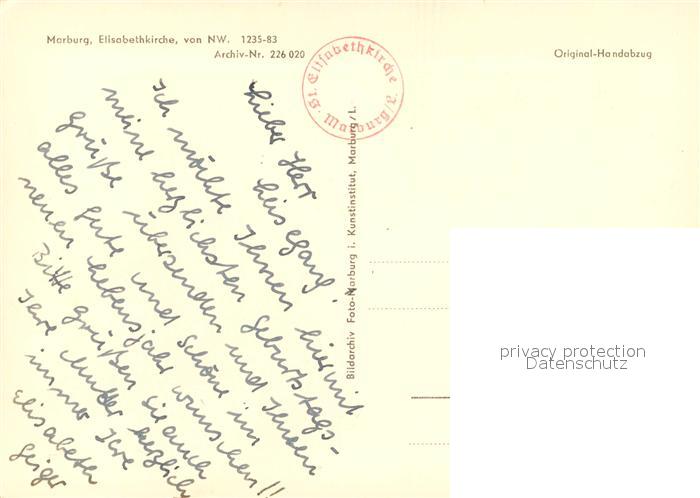 Marburg, Elisabethkirche, von NW. 1235-83
Archiv-Nr. 226 020
Original-Handabzug
St. Elisabethkirche Marburg/L.
Bildarchiv Foto-Marburg i. Kunstinstitut, Marburg/L.
Lieber Herr
Leisegang!
Ich möchte Ihnen hiermit
meine herzlichsten Geburtstags-
grüße übersenden und Ihnen
alles gute und schöne im
neuen Lebensjahr wünschen!!
Bitte grüßen sie auch
Ihre Mutter herzlich
immer Ihre
Elisabeth
Geiger
privacy protection
Datenschutz